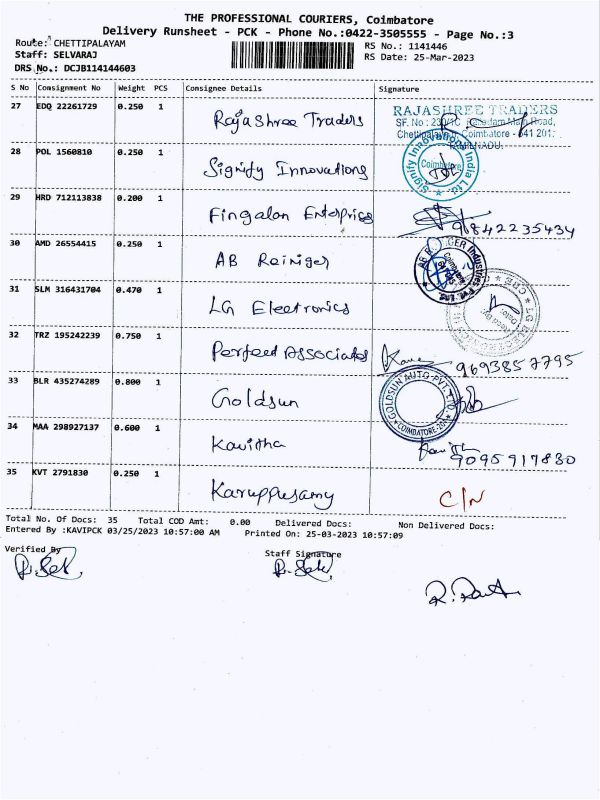 THE PROFESSIONAL COURIERS, Coimbatore
Delivery Runsheet - PCK - Phone No.:0422-3505555 - Page No.:3
Route: CHETTIPALAYAM
RS No.: 1141446
Staff: SELVARAJ
RS Date: 25-Mar-2023
DRS No.: DCJB114144603
S No Consignment No Weight PCS Consignee Details Signature
27 EDQ 22261729 0.250 1 Rajashree Traders
RAJASHREE TRADERS
SF. No : 230/1C Road,
Chettipalayam Coimbatore - 641 201.
TAMILNADU.
28 POL 1560810 0.250 1 Signify Innovations
Signify Innovations India Ltd
Coimbatore
29 HRD 712113838 0.200 1 Fingalon Enterprises 9842235434
30 AMD 26554415 0.250 1 AB Reiniger
31 SLM 316431704 0.470 1 LG Electronics
32 TRZ 195242239 0.750 1 Perfeed Associates 9693857795
33 BLR 435274289 0.800 1 Goldsun
GOLDSUN AUTO PVT. LTD
34 MAA 298927137 0.600 1 Kavitha 9095917830
35 KVT 2791830 0.250 1 Karuppusamy C/N
Total No. Of Docs: 35 Total COD Amt: 0.00 Delivered Docs: Non Delivered Docs:
Entered By :KAVIPCK 03/25/2023 10:57:00 AM Printed On: 25-03-2023 10:57:09
Verified By
Staff Signature